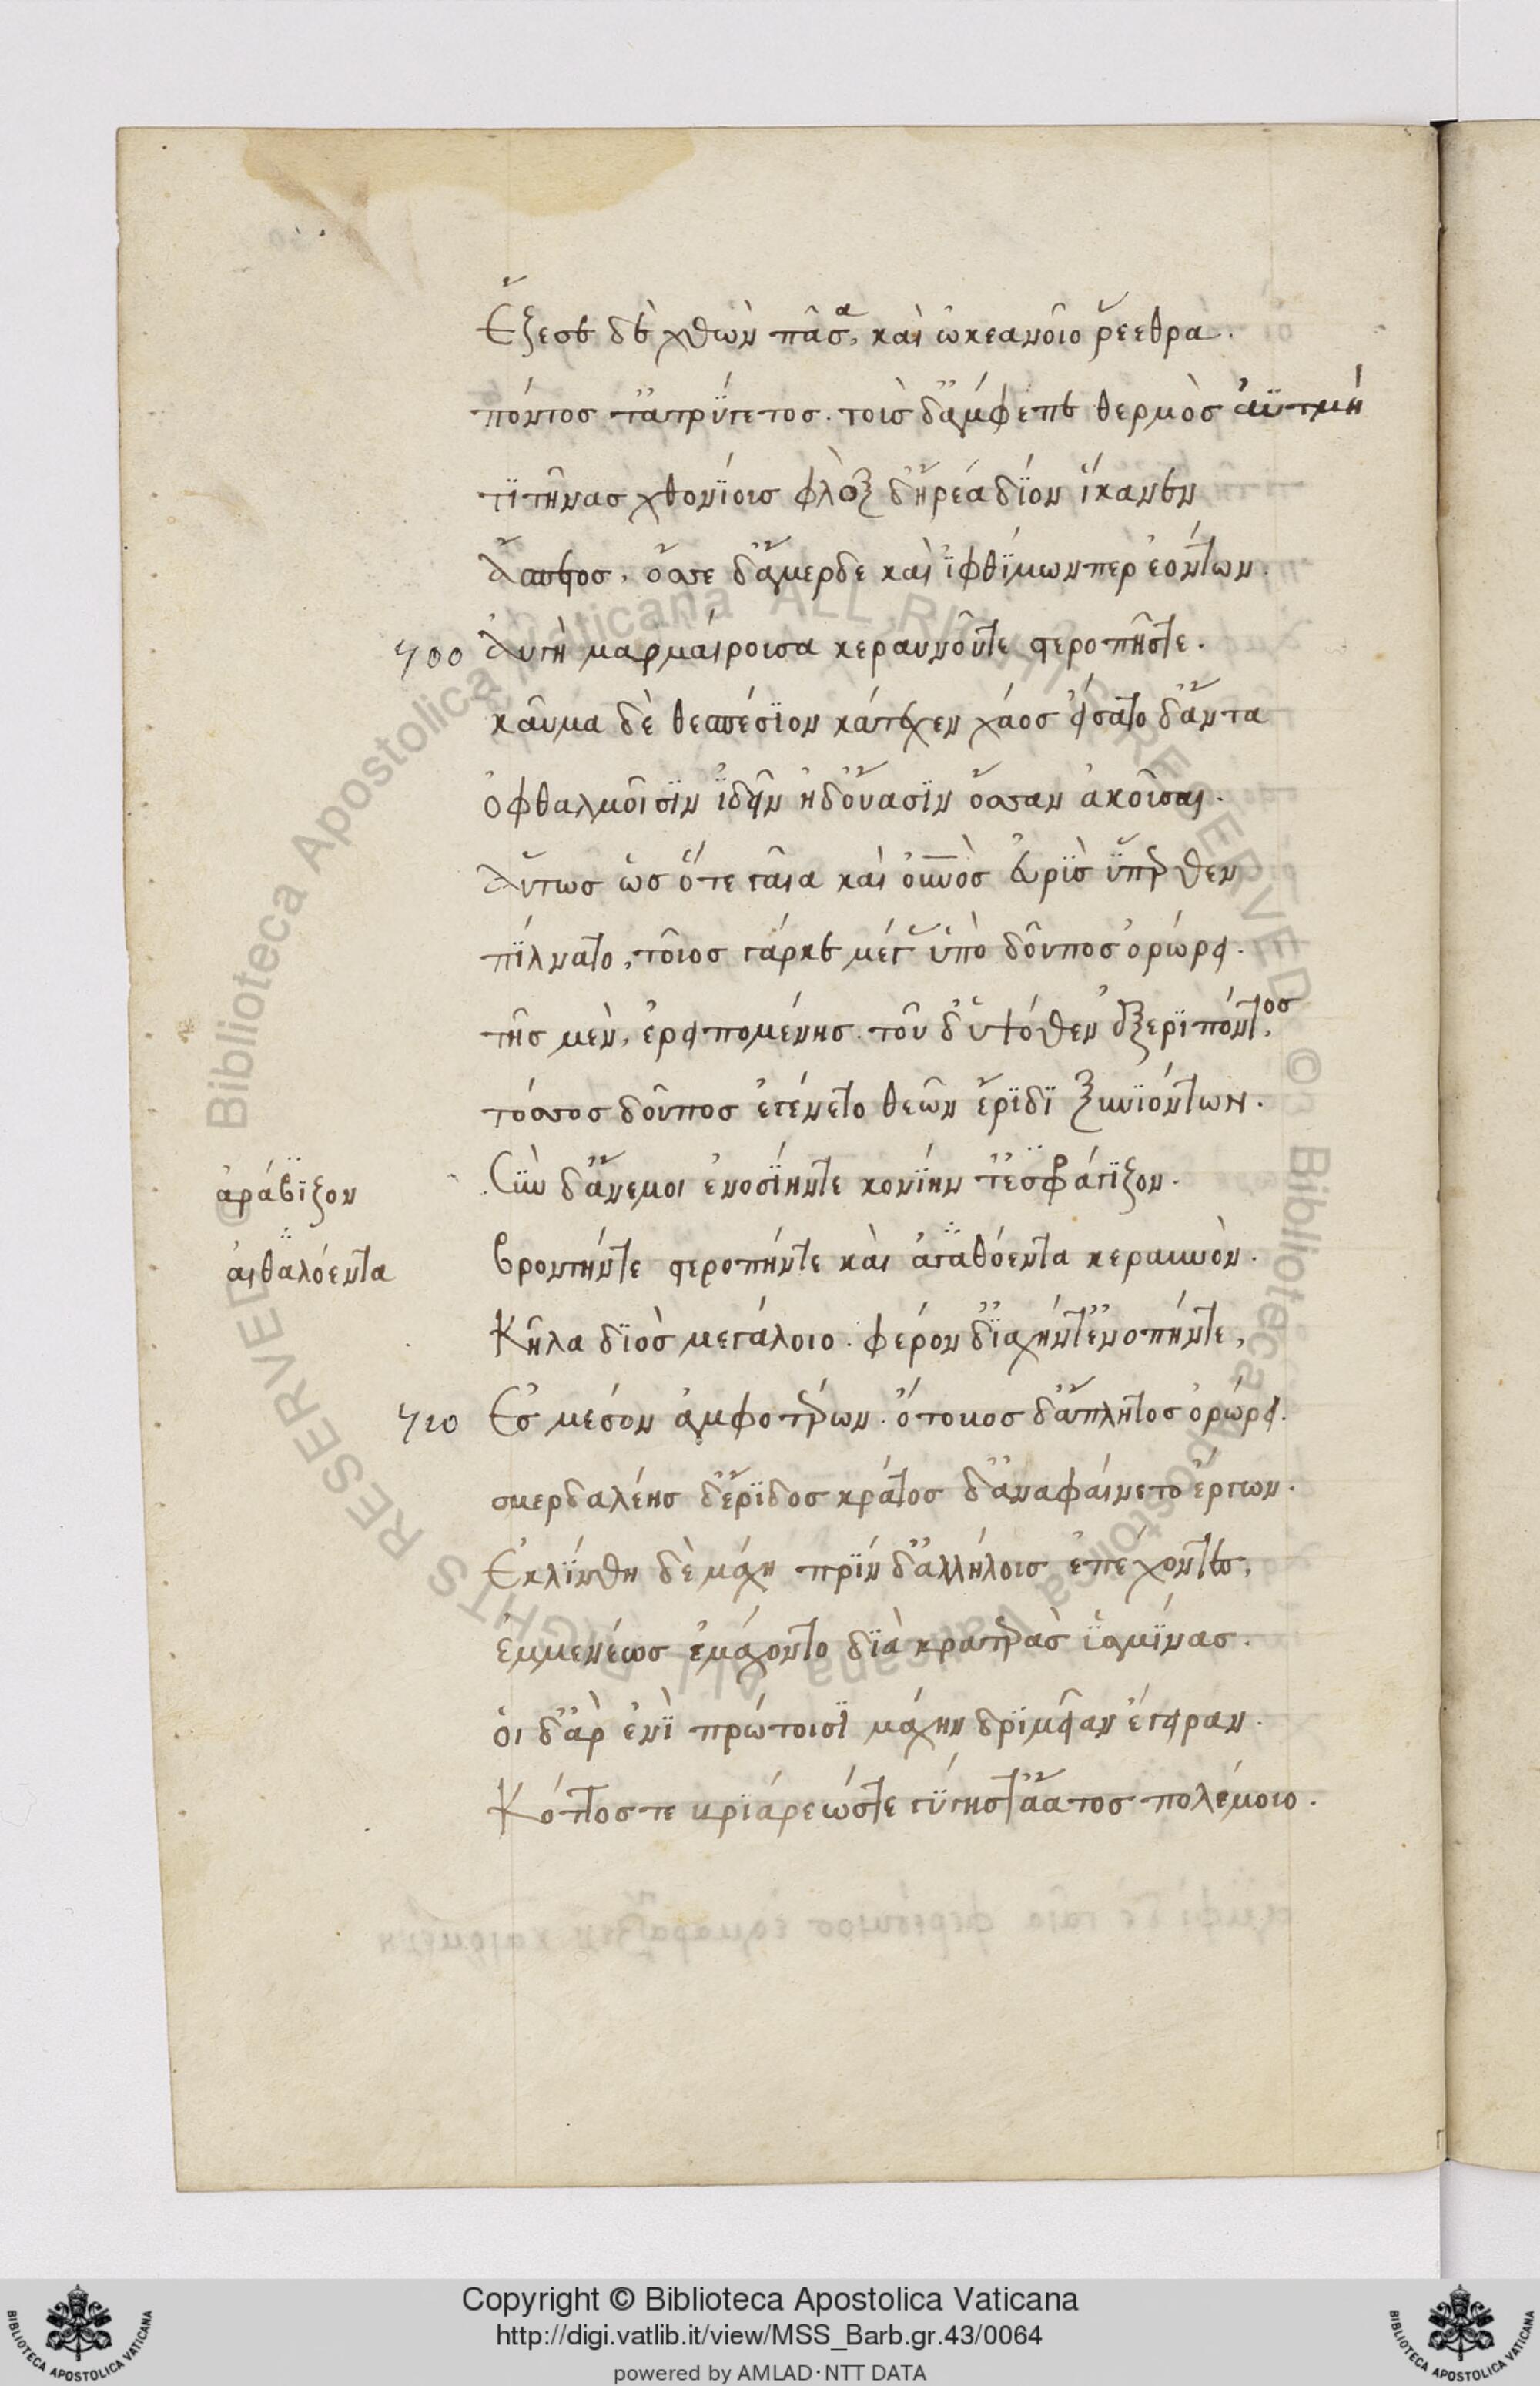 Ἔζεσε δὲ χθὼν πᾶσα, καὶ ὠκεανοῖο ῥέεθρα.
πόντος τ᾽ἀτρύγετος. τοὺς δ᾽ἄμφεπε θερμὸς ἀϋτμή
τιτῆνας χθονίους φλὸξ δ᾽ἠέρα δῖον ἵκανεν
ἄσπετος. ὄσσε δ᾽ἄμερδε καὶ ἰφθίμων περ ἐόντων.
700 Αὐγὴ μαρμαίρουσα κεραυνοῦτε στεροπῆστε.
καῦμα δὲ θεσπέσιον κάτεχεν χάος εἴσατο δ᾽ἄντα
ὀφθαλμοῖσιν ἰδεῖν ἠδ᾽οὔασιν ὄσσαν ἀκοῦσαι.
Αὔτως ὡς ὅτε γαῖα καὶ οὐρανὸς εὐρὺς ὕπερθεν
πίλνατο, τοῖος γάρ κε μέγ᾽ ὑπὸ δοῦπος ὀρώρει.
τῆς μὲν, ἐρειπομένης. τοῦ δ᾽ὑψόθεν ἐξεριπόντος.
τόσσος δοῦπος ἐγένετο θεῶν ἔριδι ξυνιόντων.
ἀράβιζον Σὺν δ᾽ἄνεμοι ἐνοσίηντε κονίην τ᾽ἐσφαράγιζον.
αἰθαλόεντα βροντήντε στεροπήντε καὶ ἀγαθόεντα κεραυνὸν.
Κῆλα διὸς μεγάλοιο. φέρον δ᾽ἰαχήντ᾽ἐνοπήντε,
710 Ἐς μέσον ἀμφοτέρων. ὄτοβος δ᾽ἄπλητος ὀρώρει.
σμερδαλέης δ᾽ἔριδος κράτος δ᾽ἀναφαίνετο ἔργων.
Ἐκλίνθη δὲ μάχη πρίν δ᾽ἀλλήλοις ἐπέχοντες,
ἐμμενέως ἐμάχοντο διὰ κρατερὰς ὑσμίνας.
οἱ δ᾽ἄρ ἐνὶ πρώτοισι μάχην δριμεῖαν ἔγειραν.
Κόττος τε βριάρεώστε γύγηστ᾽ἄατος πολέμοιο.
Copyright © Biblioteca Apostolica Vaticana
http://digi.vatlib.it/view/MSS_Barb.gr.43/0064
powered by AMLAD·NTT DATA